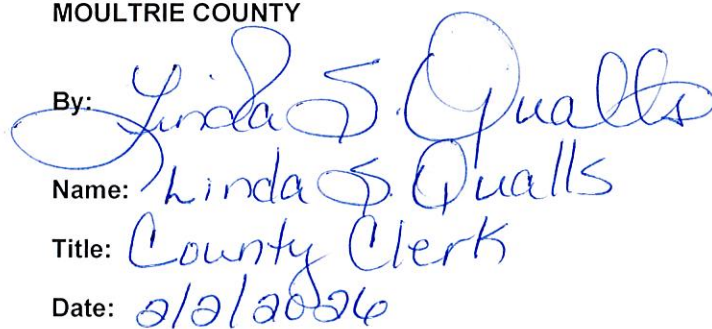 MOULTRIE COUNTY
By: Linda S. Qualls
Name: Linda S. Qualls
Title: County Clerk
Date: 2/2/2026